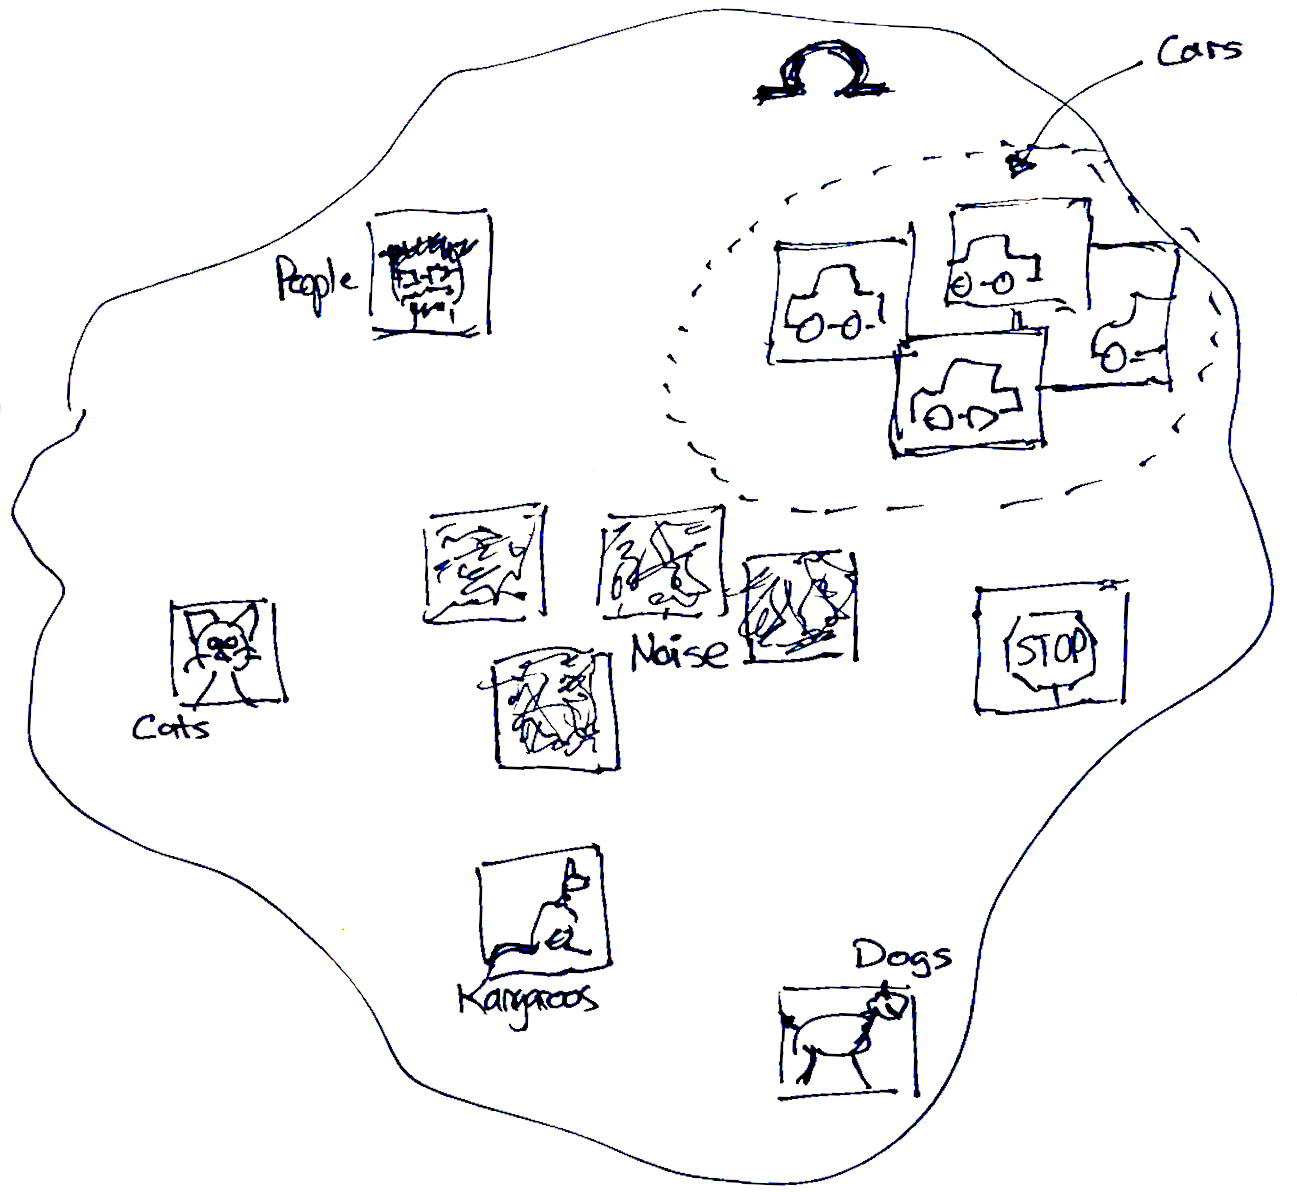 Ω
Cars
People
Noise
STOP
Cats
Kangaroos
Dogs